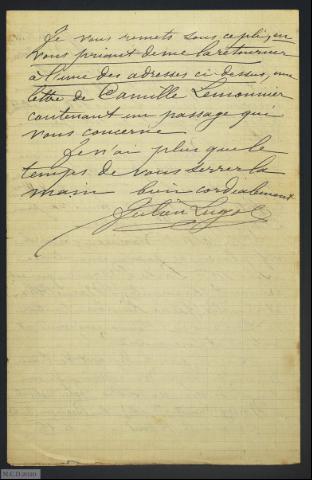 Je vous remets sous ce pli, en
vous priant de me la retourner
à l'une des adresses ci-dessus, une
lettre de Camille Lemonnier
contenant un passage qui
vous concerne
Je n'ai plus que le
temps de vous serrer la
main bien cordialement
Julien Lugol